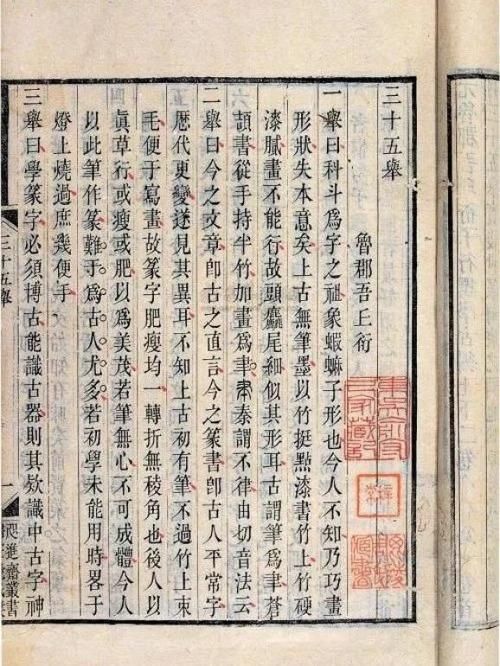 三十五舉
魯郡吾丘衍
一舉曰科斗爲字之祖象蝦蟆子形也今人不知乃巧畫
形狀失本意矣上古無筆墨以竹挺點漆書竹上竹硬
漆膩畫不能行故頭麤尾細似其形耳古謂筆爲聿蒼
頡書從手持半竹加畫爲秦謂不律由切音法云
二舉曰今之文章卽古之直言今之篆書卽古人平常字
歷代更變遂見其異耳不知上古初有筆不過竹上束
毛便于寫畫故篆字肥瘦均一轉折無稜角也後人以
眞草行或瘦或肥以爲美茂若筆無心不可成體今人
以此筆作篆難于爲古人尤多若初學未能用時畧于
燈上燒過庶幾便手
三舉曰學篆字必須博古能識古器則其欵識中古字神
三十五舉
一
咫進齋叢書